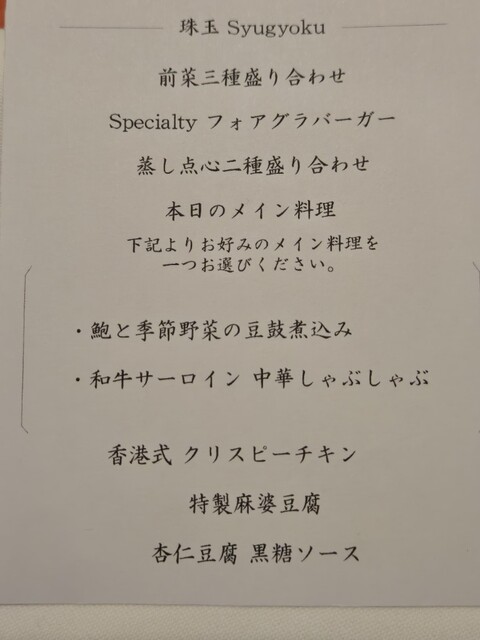 珠玉 Syugyoku
前菜三種盛り合わせ
Specialty フォアグラバーガー
蒸し点心二種盛り合わせ
本日のメイン料理
下記よりお好みのメイン料理を
一つお選びください。
・鮑と季節野菜の豆鼓煮込み
・和牛サーロイン 中華しゃぶしゃぶ
香港式 クリスピーチキン
特製麻婆豆腐
杏仁豆腐 黒糖ソース